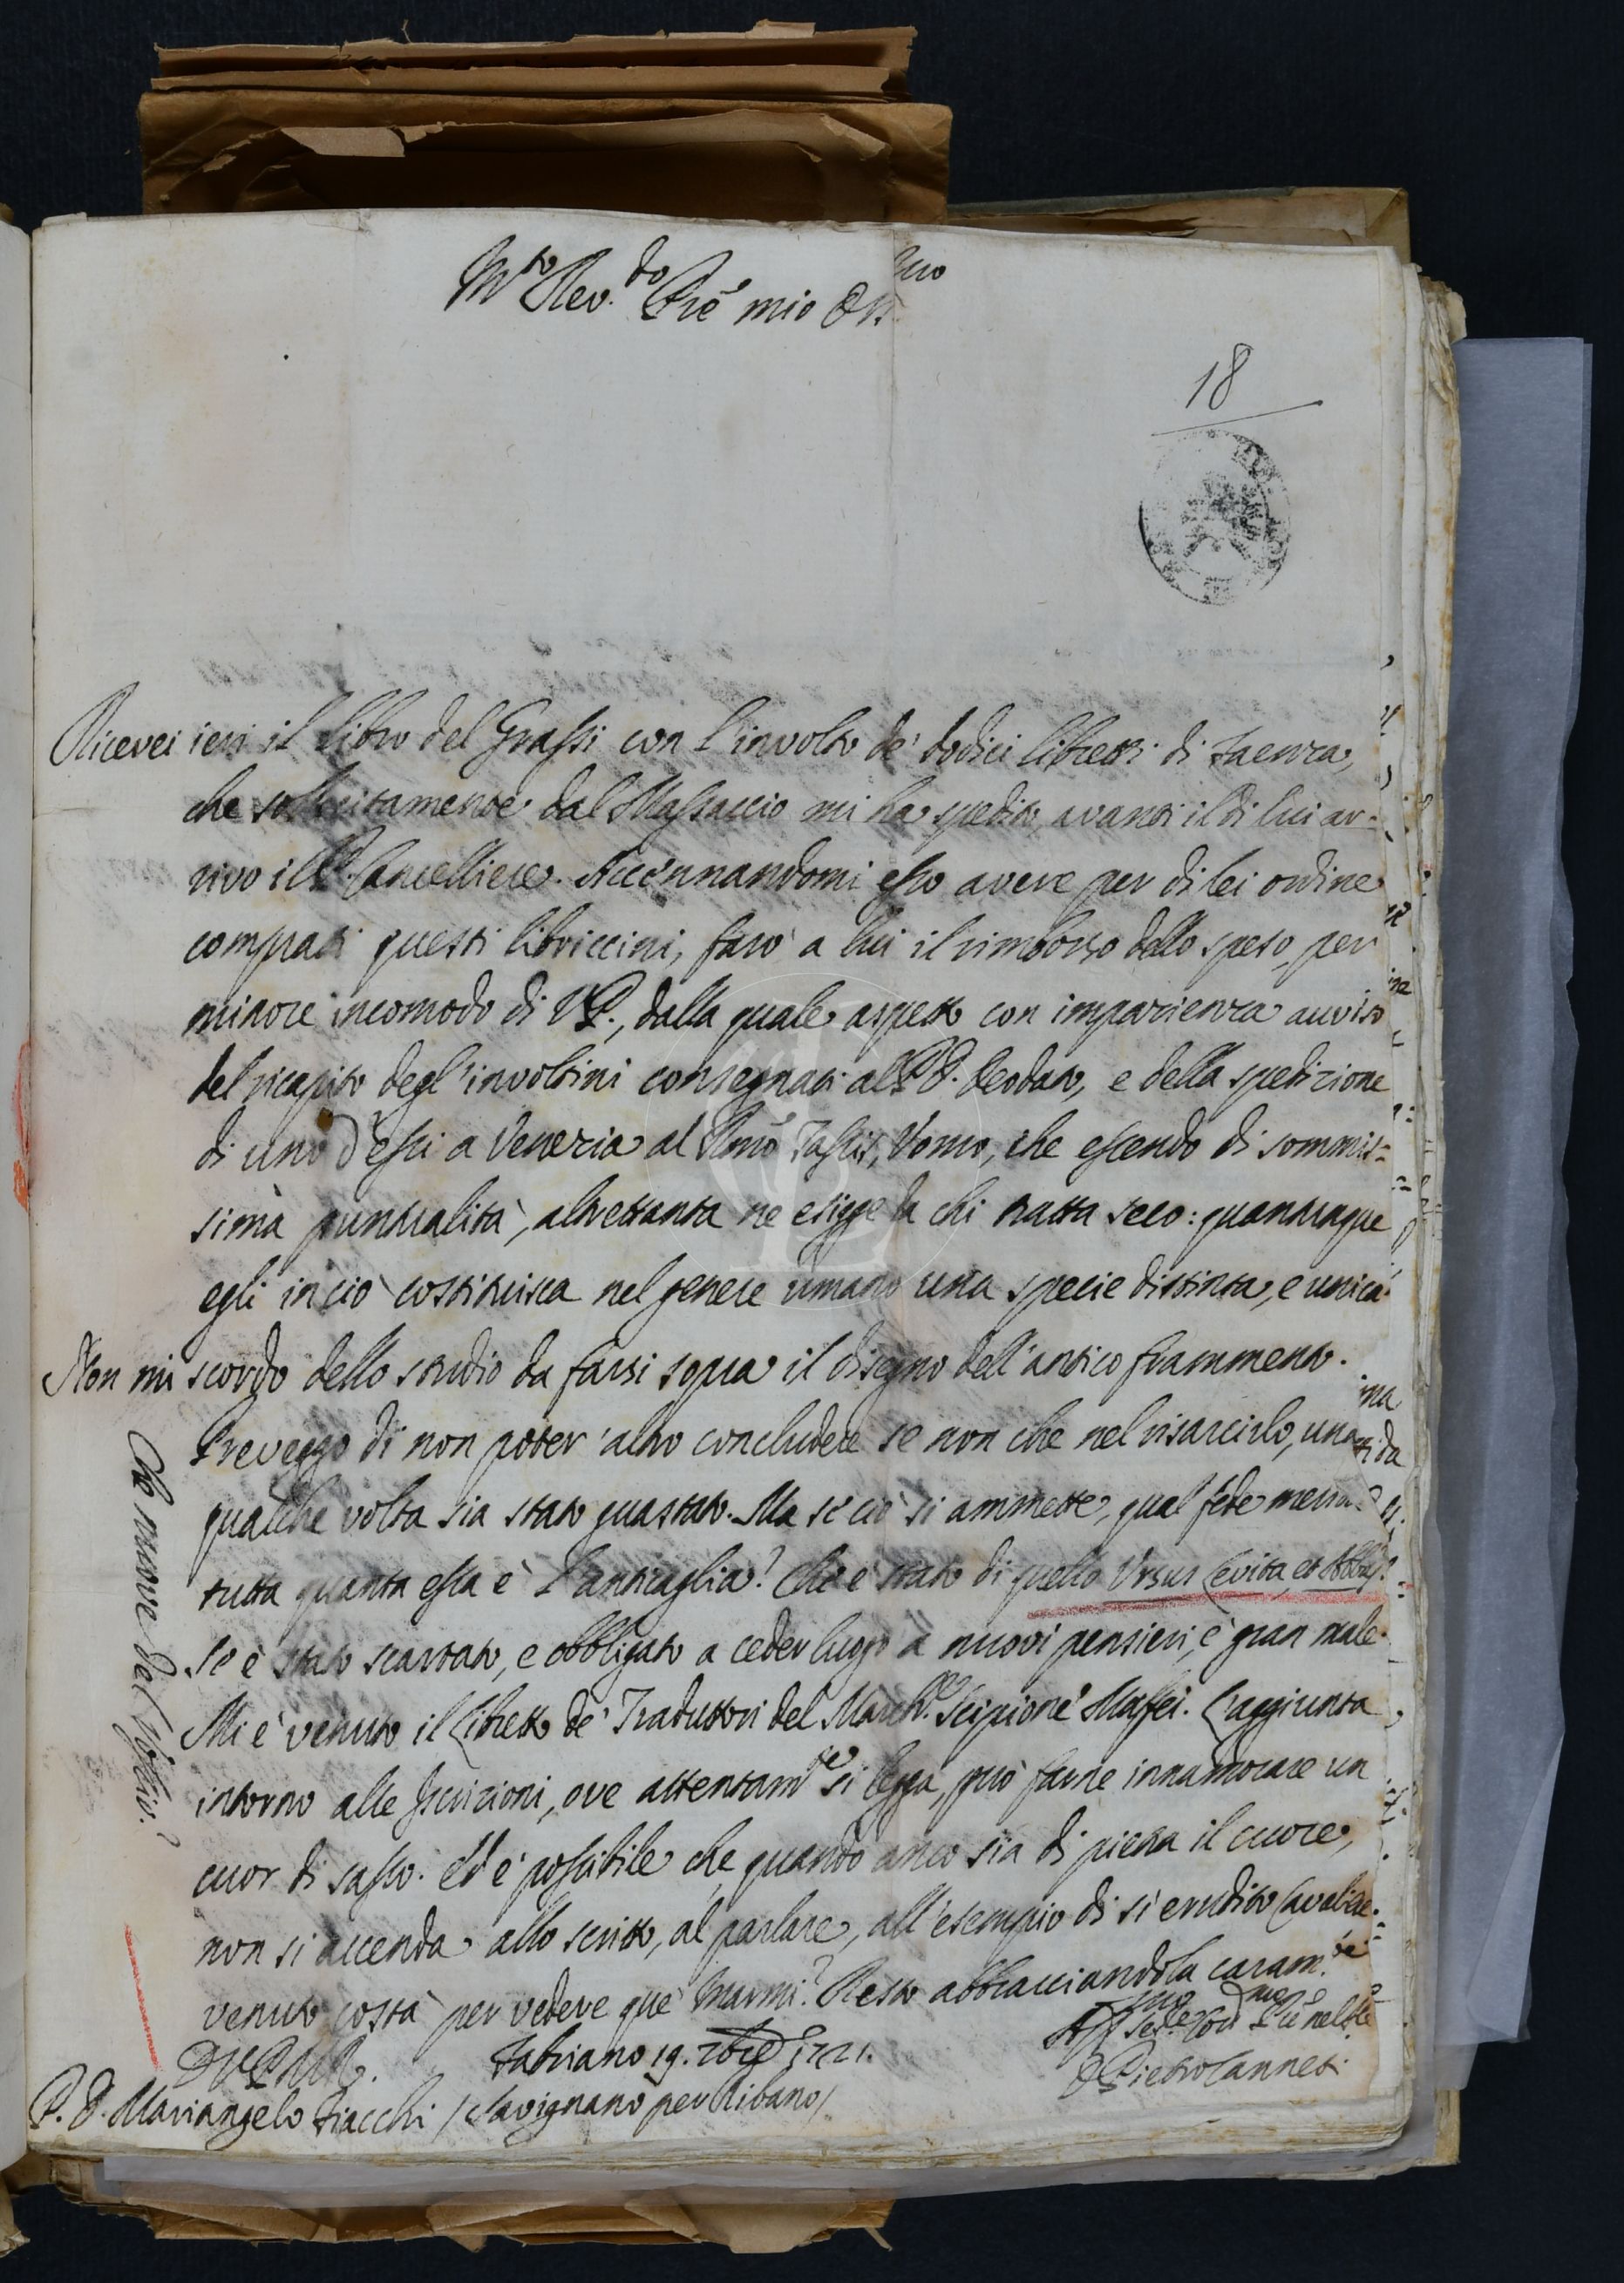 M.to Rev.do Pre mio Oss.mo
18
Ricevei ieri il Libro del Grassi con l'involto de' dodici libretti di Faenza,
che sollecitamente dal Massaccio mi ha spedito, avanti il di lui ar-
rivo il P. Cancelliere. Accennandomi esso avere per di lei ordine
comprati questi libriccini, farò a lui il rimborso dello speso, per
minore incomodo di V.P., dalla quale aspetto con impazienza avviso
del ricapito degl'involtini consegnati al P. D. Deodato, e della spedizione
di uno d'essi a Venezia al Rmo Tassis, Uomo, che essendo di sommis-
sima puntualità, altrettanta ne esigge da chi tratta seco: quantunque
egli in ciò costituisca nel genere umano una specie distinta, e unica.
Non mi scordo dello studio da farsi sopra il disegno dell'antico frammento.
Preveggo di non poter altro concludere se non che nel risarcirlo, una
qualche volta sia stato guastato. Ma se ciò si ammette, qual fede merita
tutta quanta essa è l'anticaglia? Che è stato di quello Ursus Levita, et Abbas?
Se è stato scartato, e obbligato a ceder luogo a nuovi pensieri, è gran male.
Mi è venuto il Libretto de' Traduttori del March.e Scipione Maffei. L'aggiunta
intorno alle Iscrizioni, ove attentam.te si legga, può farne innamorare un
cuor di sasso. Ed è possibile che, quando anco sia di pietra il cuore,
non si accenda allo scritto, al parlare, all'esempio di sì erudito Cavaliere
venuto costà per vedere que' Marmi? Resto abbracciandola caram.te
Fabriano 19. 7bre 1721.
D. Pietro Canneti
P. D. Mariangelo Fiacchi / Savignano per Ribano /
Che nuove del